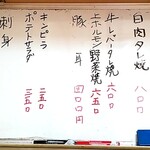 白肉タレ焼 八〇〇
牛レバータレ焼 六〇〇
上ホルモン野菜焼 六五〇
豚耳 四〇〇円
キンピラ 二五〇
ポテトサラダ 三五〇
刺身